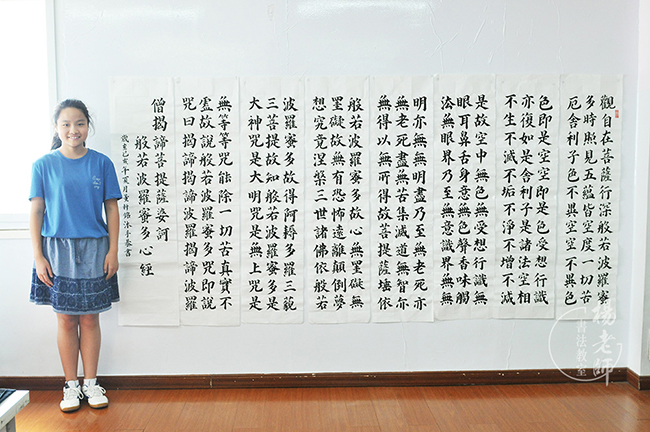 觀自在菩薩行深般若波羅蜜
多時照見五蘊皆空度一切苦
厄舍利子色不異空空不異色
色即是空空即是色受想行識
亦復如是舍利子是諸法空相
不生不滅不垢不淨不增不減
是故空中無色無受想行識無
眼耳鼻舌身意無色聲香味觸
法無眼界乃至無意識界無無
明亦無無明盡乃至無老死亦
無老死盡無苦集滅道無智亦
無得以無所得故菩提薩埵依
般若波羅蜜多故心無罣礙無
罣礙故無有恐怖遠離顛倒夢
想究竟涅槃三世諸佛依般若
波羅蜜多故得阿耨多羅三藐
三菩提故知般若波羅蜜多是
大神咒是大明咒是無上咒是
無等等咒能除一切苦真實不
虛故說般若波羅蜜多咒即說
咒曰揭諦揭諦波羅揭諦波羅
僧揭諦菩提薩婆訶
般若波羅蜜多心經
歲 己亥年 月 沐手恭書
楊老師
書法教室